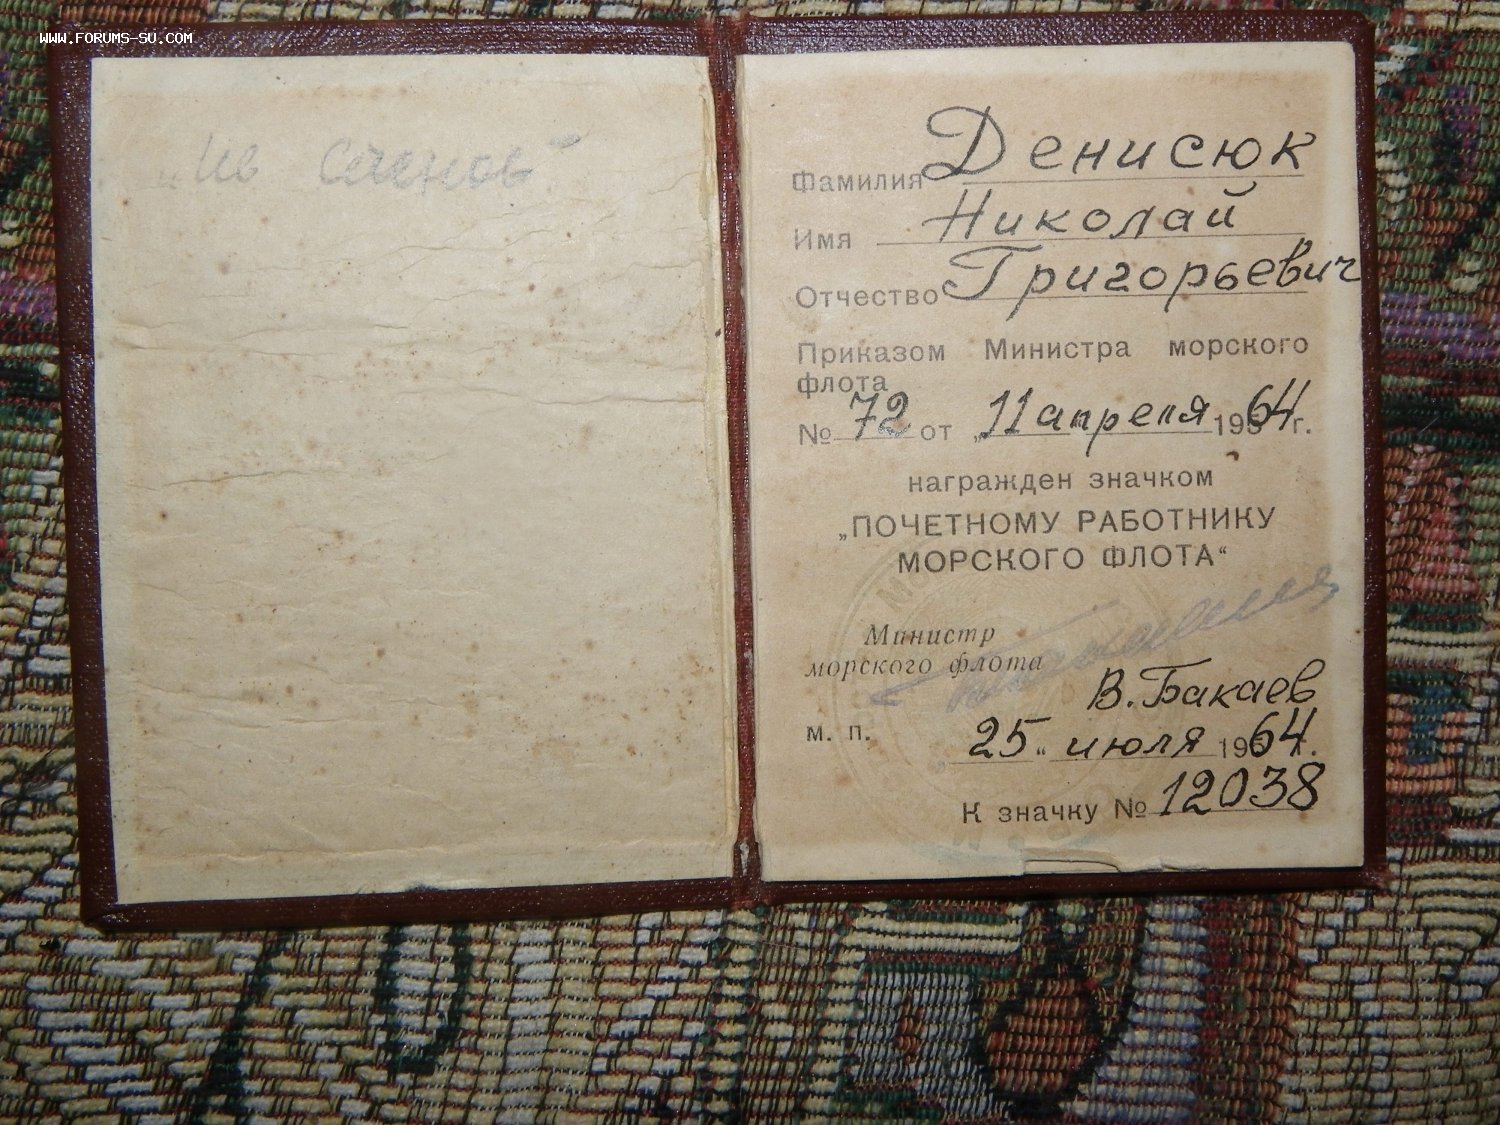 WWW.FORUMS-SU.COM
„Ив Сеченов"
Фамилия Денисюк
Имя Николай
Отчество Григорьевич
Приказом Министра морского
флота
№ 72 от „11 апреля 1964 г.
награжден значком
„ПОЧЕТНОМУ РАБОТНИКУ
МОРСКОГО ФЛОТА“
Министр
морского флота
В. Бакаев
м. п. „25“ июля 1964 г.
К значку № 12038